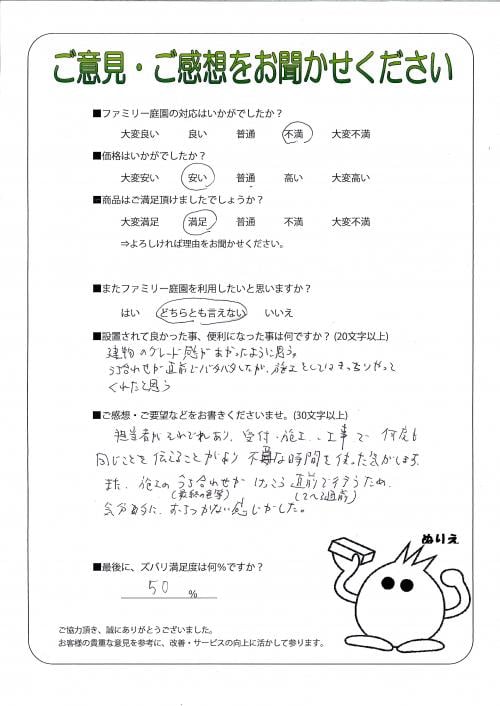 ご意見・ご感想をお聞かせください
■ファミリー庭園の対応はいかがでしたか？
大変良い 良い 普通 不満 大変不満
■価格はいかがでしたか？
大変安い 安い 普通 高い 大変高い
■商品はご満足頂けましたでしょうか？
大変満足 満足 普通 不満 大変不満
⇒よろしければ理由をお聞かせください。
■またファミリー庭園を利用したいと思いますか？
はい どちらとも言えない いいえ
■設置されて良かった事、便利になった事は何ですか？(20文字以上)
建物のグレード感があがったように思う。
うち合わせが直前でバタバタしたが、施工としてはきっちりやって
くれたと思う
■ご感想・ご要望などをお書きくださいませ。(30文字以上)
担当者がそれぞれあり、受付・施工、工事で 何度も
同じことを伝えることがあり 不要な時間を使った気がします。
また、施工のうち合わせがけっこう直前で行うため、
(最終の色等) (1〜2週前)
気分的に、おちつかない感じがした。
ぬりえ
■最後に、ズバリ満足度は何％ですか？
50 ％
ご協力頂き、誠にありがとうございました。
お客様の貴重な意見を参考に、改善・サービスの向上に活かして参ります。